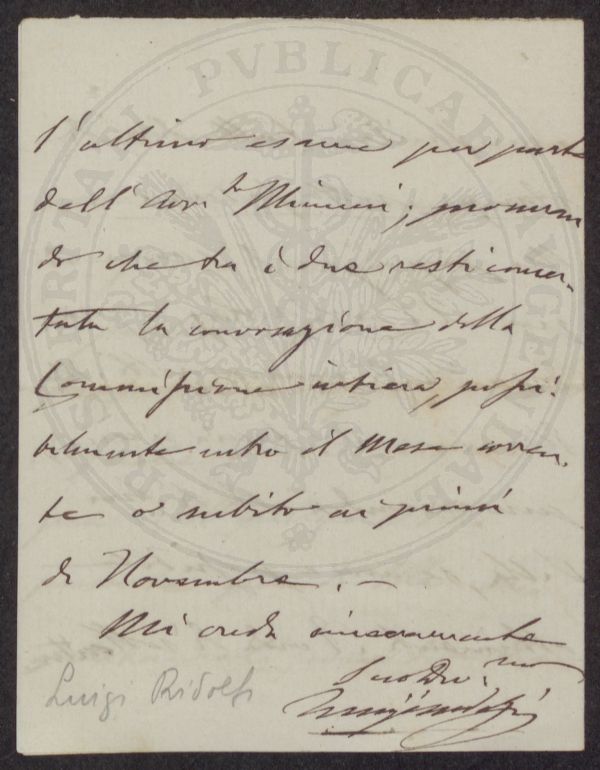 l'ultimo esame per parte
dell' Avv.to Minucci; premen
do che tra i due resti concer-
tata la convocazione della
Commissione intiera, possi-
bilmente entro il Mese corren-
te o subito ai primi
di Novembre. —
Mi creda sinceramente
Suo Dev.mo
Luigi Ridolfi
Luigi Ridolfi